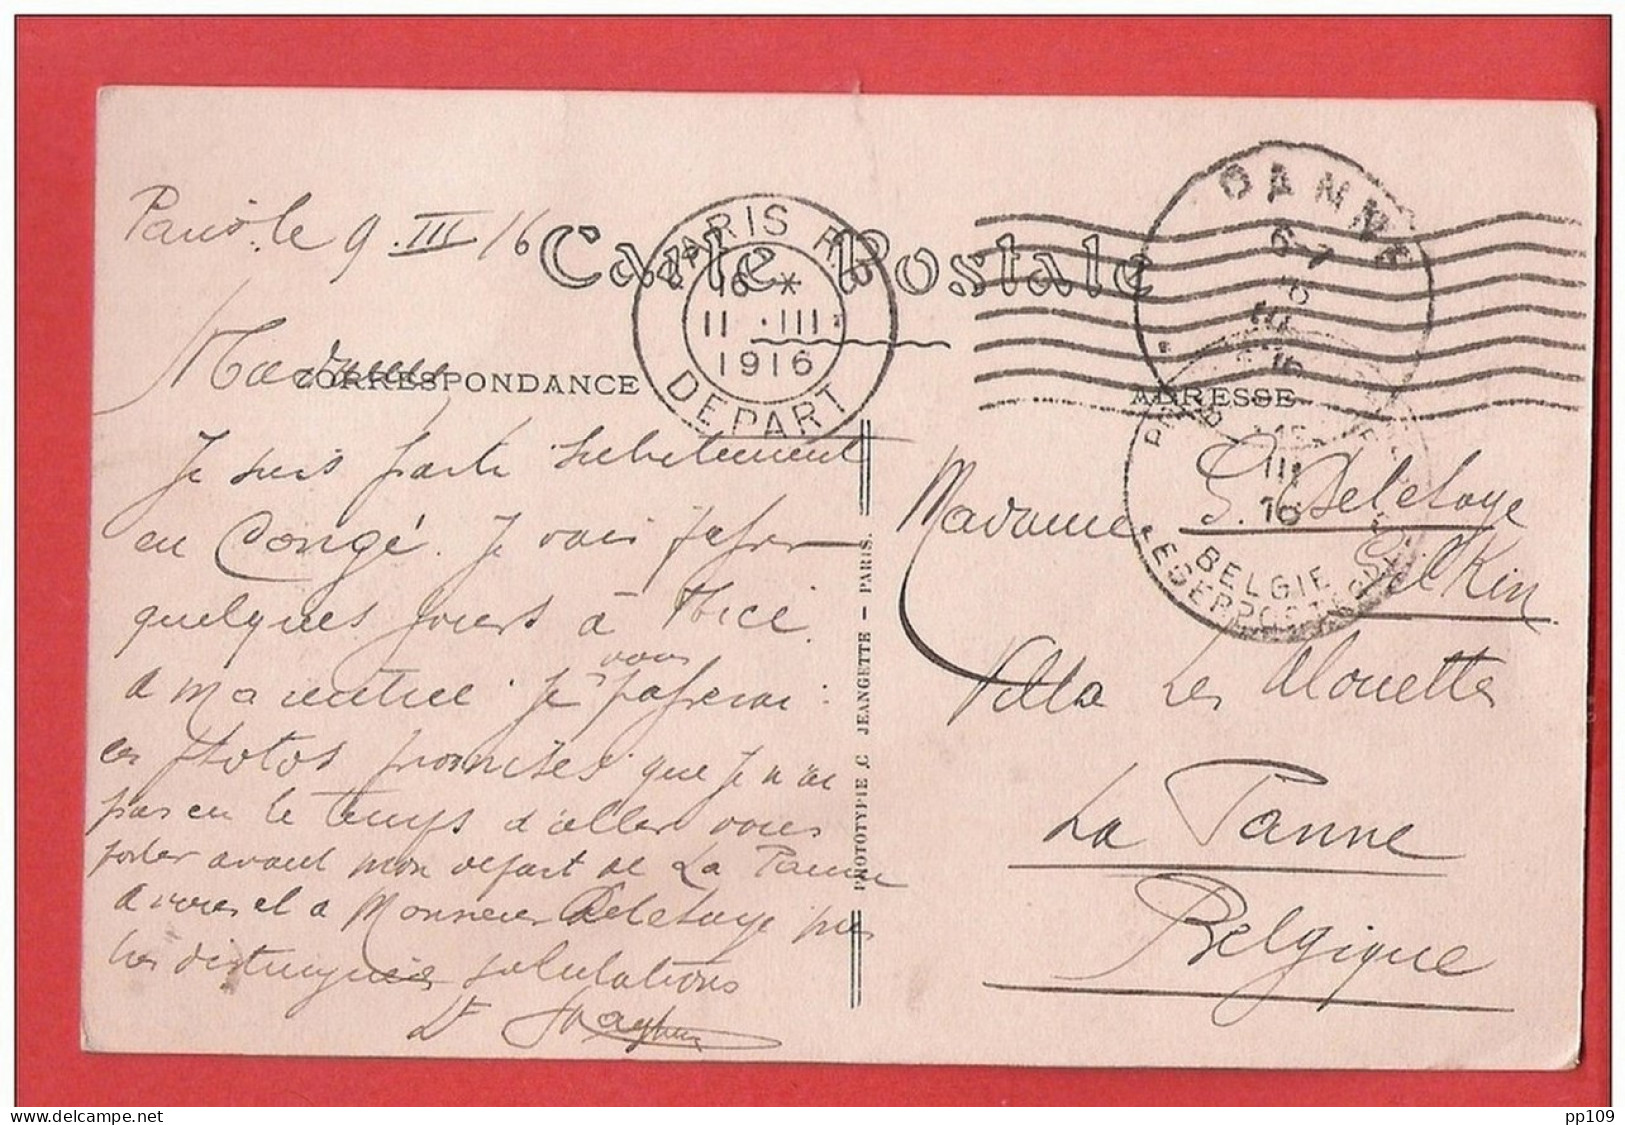 Paris. le 9. III /16
Carte Postale
PARIS R.
16 *
II . III .
1916
DEPART
PANNE
6-7
III
16
Madame
CORRESPONDANCE
ADRESSE
Je suis partie subitement
en Congé. Je vais passer
quelques jours à Nice.
a ma rentrée je vous passerai
les photos promises que je n'ai
pas eu le temps d'aller vous
porter avant mon départ de La Panne
a vous et a Monsieur Deletaye mes
distinguées salutations
Dr
PHOTOTYPIE C JEANGETTE - PARIS.
Madame G. Deletaye
Gilkin
III
16
BELGIE
LEGERPOST
Villa Les Alouettes
La Panne
Belgique
pp109
luxus.delcampe.net